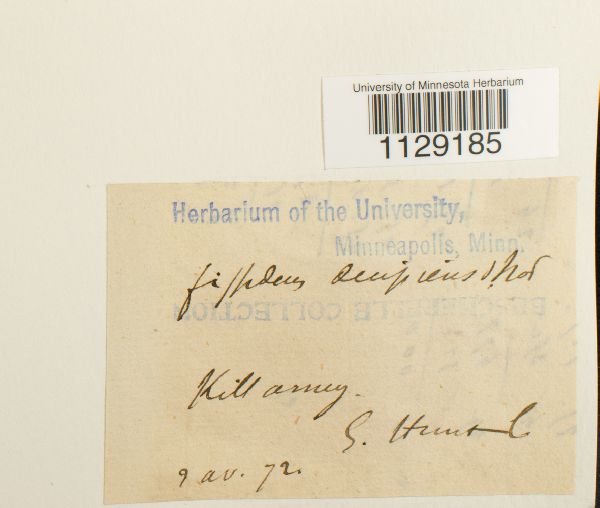 University of Minnesota Herbarium
1129185
Herbarium of the University,
Minneapolis, Minn.
fissidens decipiens d. Not
BESCHERELLE COLLECTION
Killarney.
G. Hunt
9 av. 72.